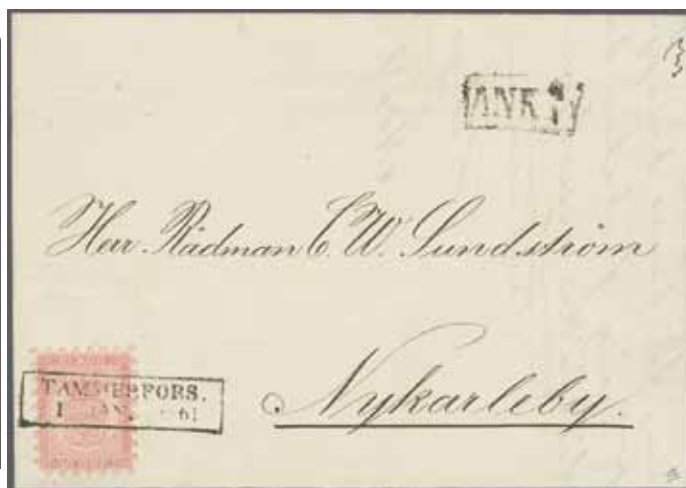 ANK
Herr Rådman C. W. Sundström
Nykarleby.
TAMMERFORS.
1 JAN. 61